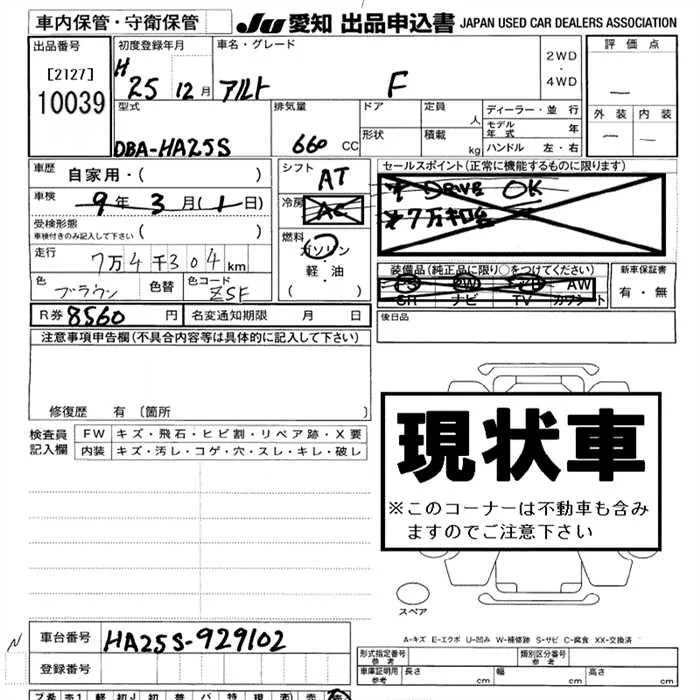 車内保管・守衛保管 JU 愛知 出品申込書 JAPAN USED CAR DEALERS ASSOCIATION
出品番号 初度登録年月 車名・グレード 2WD ・ 4WD 評価点
[2127] H 25 12月 アルト F
10039 型式 排気量 ドア 定員 人 ディーラー・並行 外装 内装
モデル年式 年
DBA-HA25S 660 CC 形状 積載 kg ハンドル 左・右
車歴 自家用・( ) シフト AT セールスポイント(正常に機能するものに限ります)
車検 9年3月(1日) 冷房 AC DRIVE OK
受検形態 7万キロ台
車検付きのみ記入して下さい ( ) 燃料 ガソリン
走行 7万4千304km ・ 軽・油 装備品(純正品に限り○をつけてください) 新車保証書
色 ブラウン 色替 色コード ZSF ( ) PS PW AW 有・無
SR ナビ TV カワシート
R券 8560円 名変通知期限 月 日 後日品
注意事項申告欄(不具合内容等は具体的に記入して下さい)
修復歴 有 〔箇所 〕
現状車
※このコーナーは不動車も含み
ますのでご注意下さい
検査員 FW キズ・飛石・ヒビ割・リペア跡・X要
記入欄 内装 キズ・汚レ・コゲ・穴・スレ・キレ・破レ
スペア
A-キズ E-エクボ U-凹み W-補修跡 S-サビ C-腐食 XX-交換済
N 車台番号 HA25S-929102
形式指定番号 参考 類別区分番号 参考
登録番号 車庫証明用 参考 長さ cm 幅 cm 高さ cm